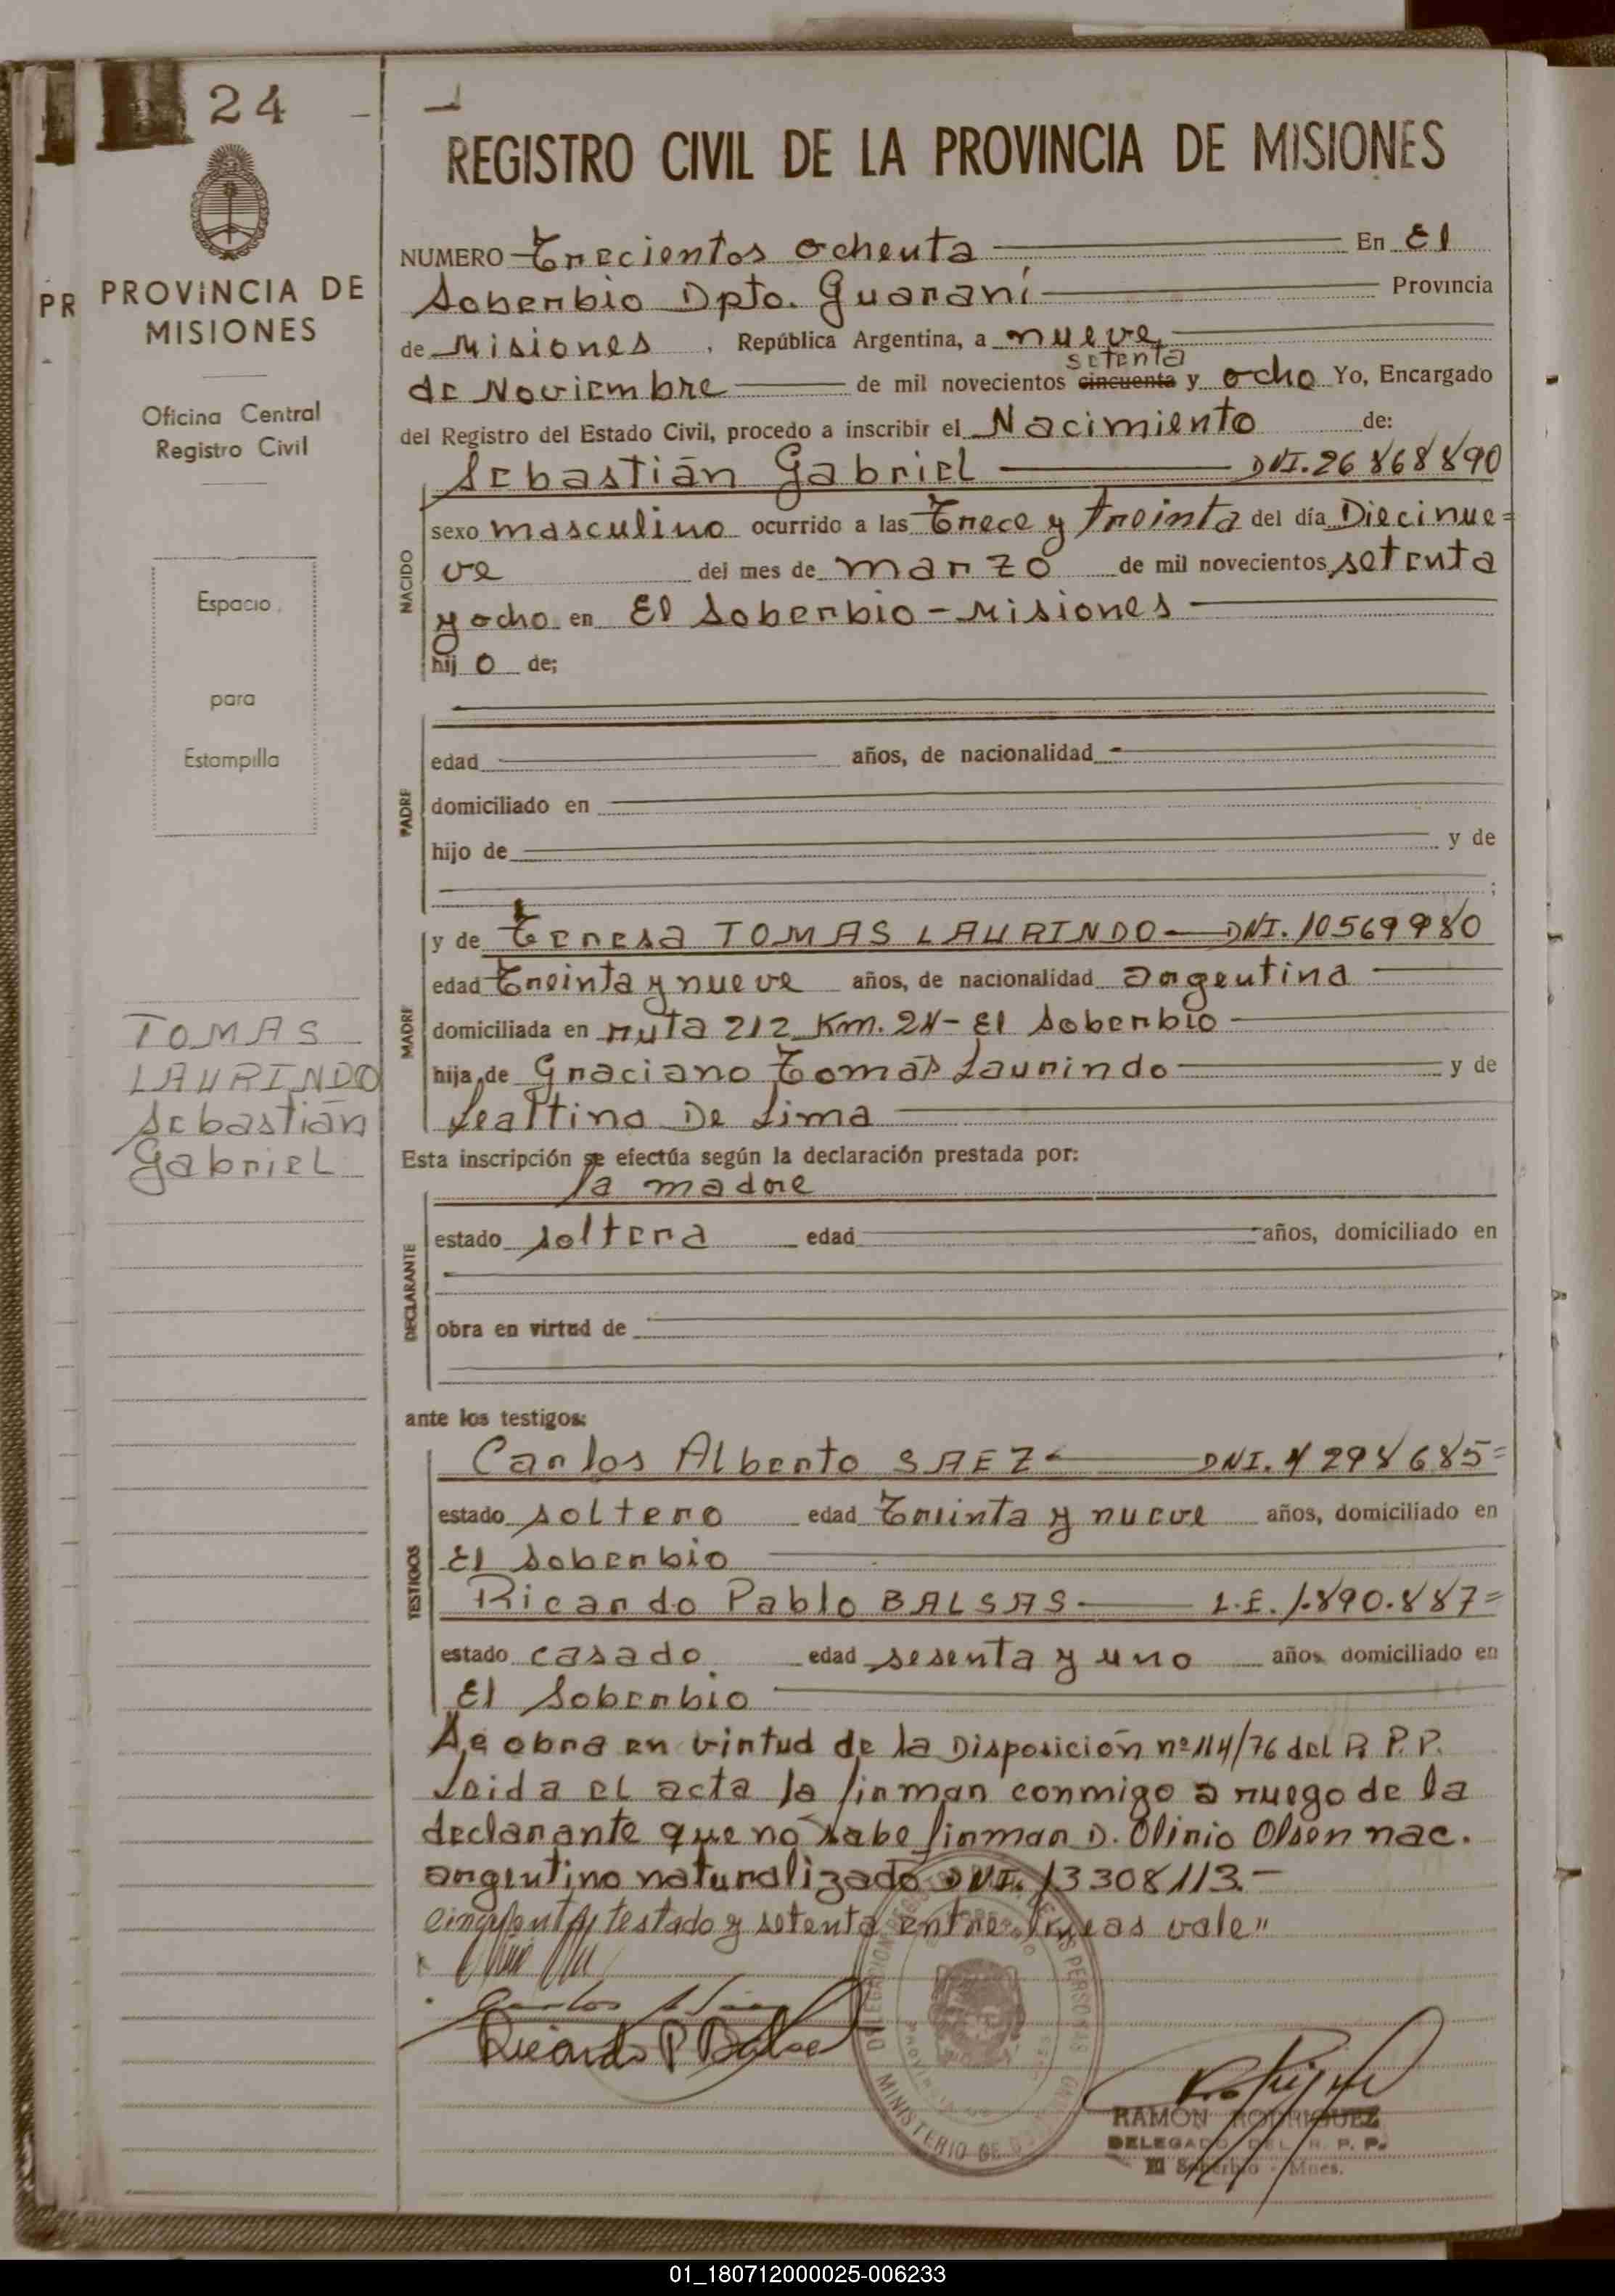 24
PR
PROVINCIA DE
MISIONES
Oficina Central
Registro Civil
Espacio
para
Estampilla
TOMAS
LAURINDO
Sebastián
Gabriel
REGISTRO CIVIL DE LA PROVINCIA DE MISIONES
NUMERO Trecientos ochenta En El
Soberbio Dpto. Guaraní Provincia
de Misiones, República Argentina, a nueve
setenta
de Noviembre de mil novecientos cincuenta y ocho Yo, Encargado
del Registro del Estado Civil, procedo a inscribir el Nacimiento de:
Sebastián Gabriel DNI. 26868890
NACIDO
sexo masculino ocurrido a las Trece y treinta del día Diecinue=
ve del mes de marzo de mil novecientos setenta
y ocho en El Soberbio - Misiones
hij o de;
PADRE
edad años, de nacionalidad
domiciliado en
hijo de y de
;
MADRE
y de Teresa TOMAS LAURINDO DNI. 10569980
edad Treinta y nueve años, de nacionalidad argentina
domiciliada en ruta 212 Km. 28 - El Soberbio
hija de Graciano Tomás Laurindo y de
Lealtina De Lima
Esta inscripción se efectúa según la declaración prestada por:
la madre
DECLARANTE
estado soltera edad años, domiciliado en
obra en virtud de
ante los testigos:
TESTIGOS
Carlos Alberto SAEZ DNI. 4298685=
estado soltero edad Treinta y nueve años, domiciliado en
El Soberbio
Ricardo Pablo BALSAS L.E. 1.890.887=
estado casado edad sesenta y uno años domiciliado en
El Soberbio
Se obra en virtud de la Disposición nº 114/76 del R P.P.
Leida el acta la firman conmigo a ruego de la
declarante que no sabe firmar D. Olinio Olsen nac.
argentino naturalizado DNI. 13308113.-
cincuenta, testado y setenta entre lineas vale"
Ricardo P Balsas
MINISTERIO DE
RAMON RODRIGUEZ
DELEGADO DEL R. P. P.
El Soberbio - Mnes.
01_180712000025-006233